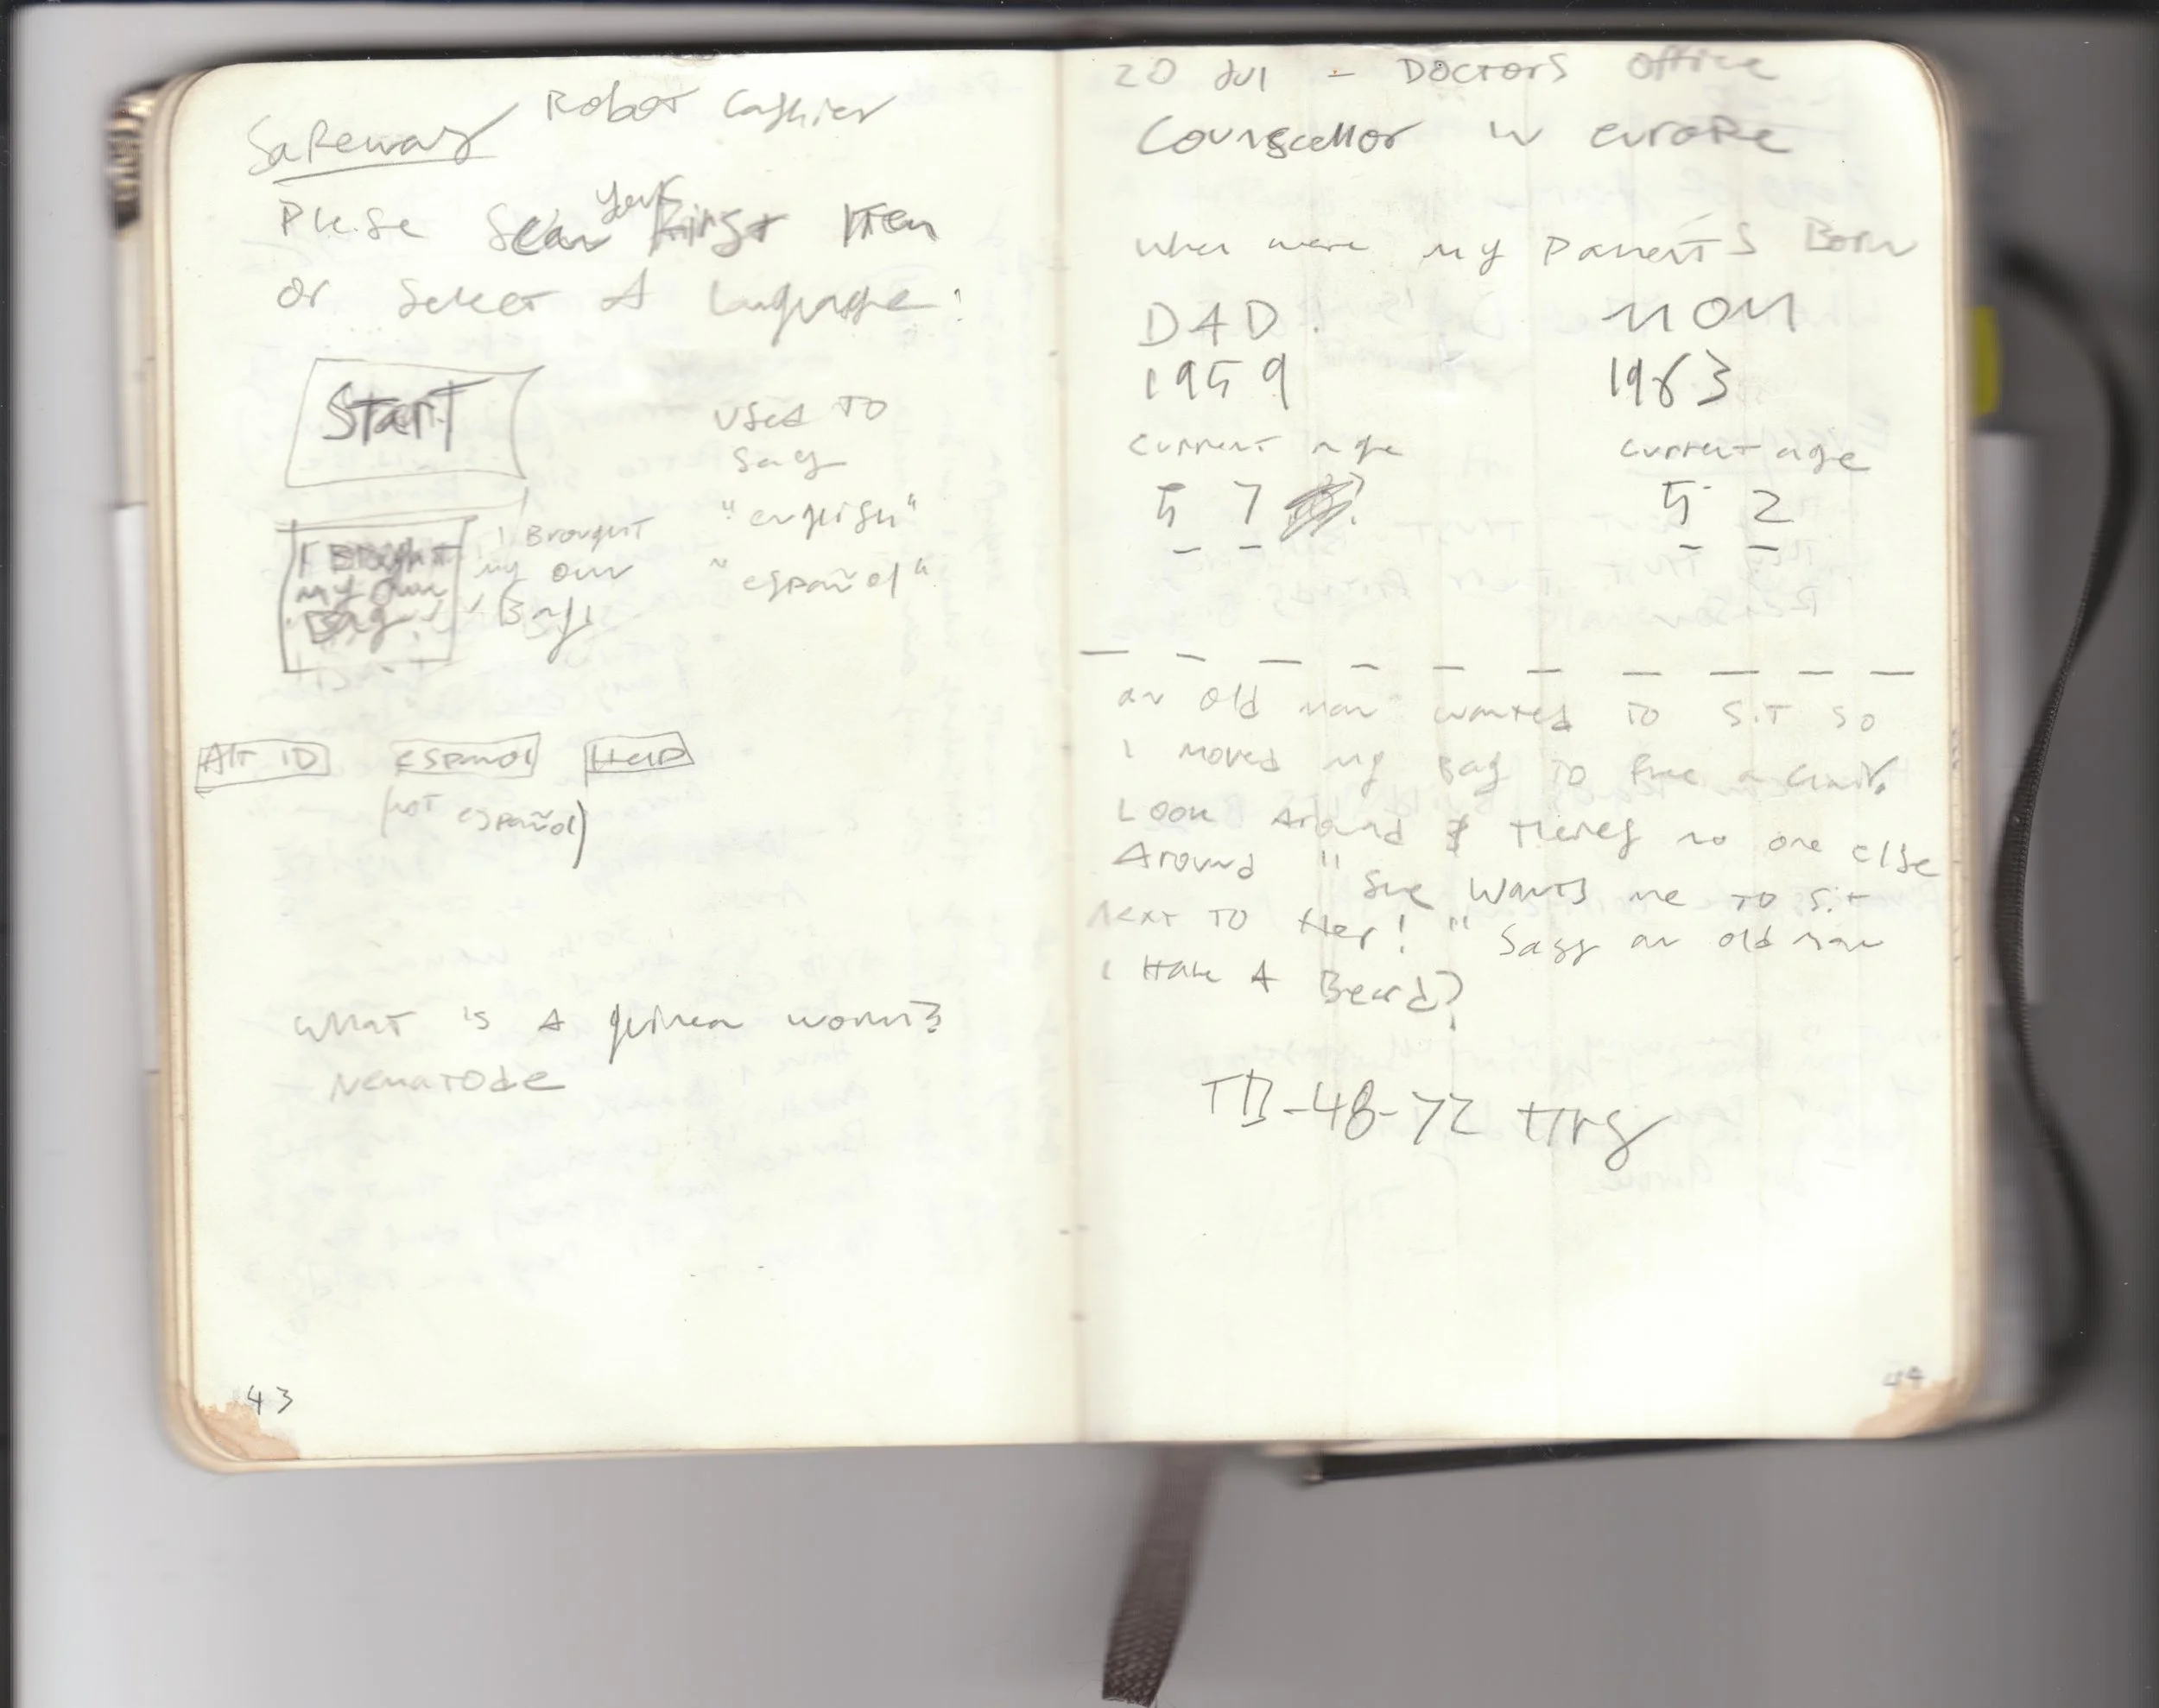 Safeway Robot Cashier
Please Scan your First Item
or Select A Language:
Start
used to
say
"english"
"español"
I Brought
my own
Bag
I Brought
my own
Bags
Alt ID
espanol
Help
(not español)
What is a guinea worm?
Nematode
43
20 Jul - Doctors Office
Counscellor in europe
when were my Parents Born
DAD. MOM
1959 1963
current age current age
57 52
an old man wanted to sit so
I moved my bag to free a chair.
Look Around & theres no one else
Around "She wants me to sit
next to Her!" Says an old man
I Have A Beard?
TB-48-72 Hrs
44